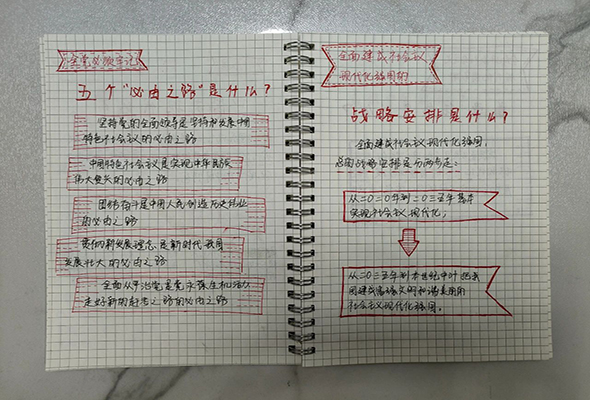 全党必须牢记
五个"必由之路"是什么?
坚持党的全面领导是坚持和发展中国
特色社会主义的必由之路
中国特色社会主义是实现中华民族
伟大复兴的必由之路
团结奋斗是中国人民创造历史伟业
的必由之路
贯彻新发展理念是新时代我国
发展壮大的必由之路
全面从严治党是党永葆生机活力
走好新的赶考之路的必由之路
全面建成社会主义
现代化强国的
战略安排是什么?
全面建成社会主义现代化强国,
总的战略安排是分两步走:
从二〇二〇年到二〇三五年基本
实现社会主义现代化,
从二〇三五年到本世纪中叶把我
国建成富强民主文明和谐美丽的
社会主义现代化强国。